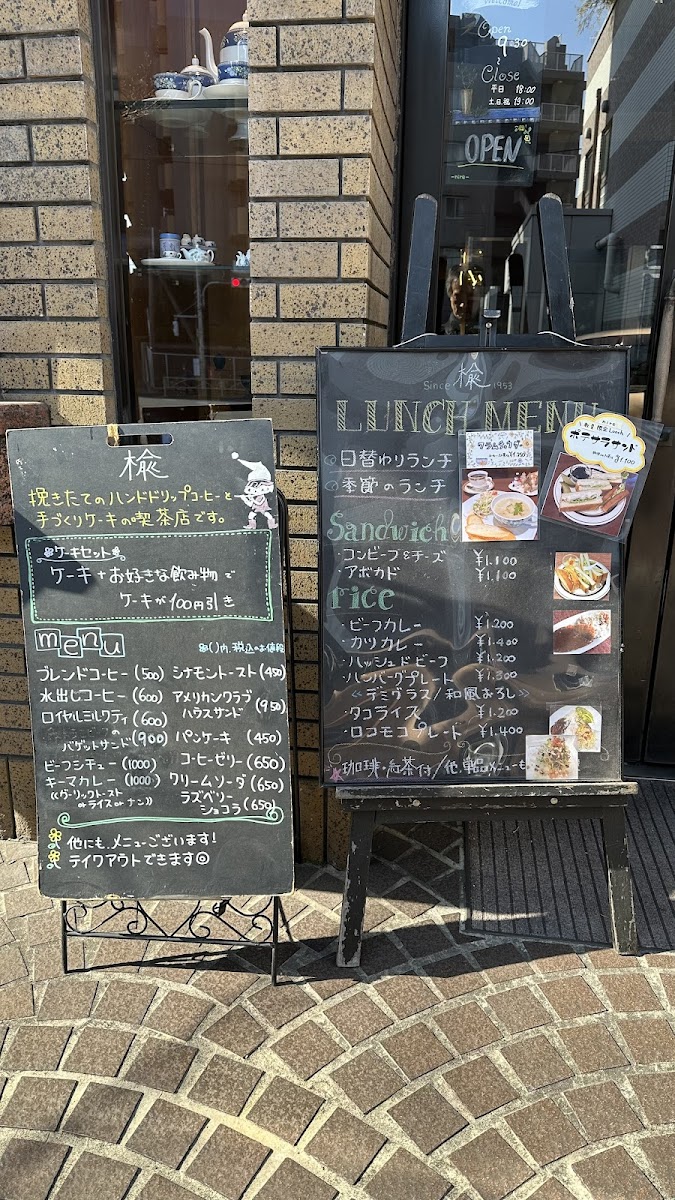 Open
9:30
Close
平日 18:00
土日祝 19:00
OPEN
楡
挽きたてのハンドドリップコーヒーと
手づくりケーキの喫茶店です。
ケーキセット
ケーキ+お好きな飲み物で
ケーキが100円引き
menu
( )内、税込のお値段
ブレンドコーヒー (500)
水出しコーヒー (600)
ロイヤルミルクティ (600)
の
バゲットサンド (900)
ビーフシチュー (1000)
キーマカレー (1000)
《ガーリックトースト
orライスorナン》
シナモントースト (450)
アメリカンクラブ
ハウスサンド (950)
パンケーキ (450)
コーヒーゼリー (650)
クリームソーダ (650)
ラズベリー
ショコラ (650)
他にも、メニューございます!
テイクアウトできます◎
Since 楡 1953
LUNCH MENU
日替わりランチ
季節のランチ
ポテサラサンド
¥1100
Sandwich
・コンビーフ&チーズ ¥1.100
・アボカド ¥1.100
rice
・ビーフカレー ¥1.200
・カツカレー ¥1.400
・ハッシュドビーフ ¥1.200
・ハンバーグプレート ¥1.300
≪デミグラス/和風おろし≫
・タコライス ¥1.200
・ロコモコプレート ¥1.400
珈琲・紅茶付/他、単品メニューも